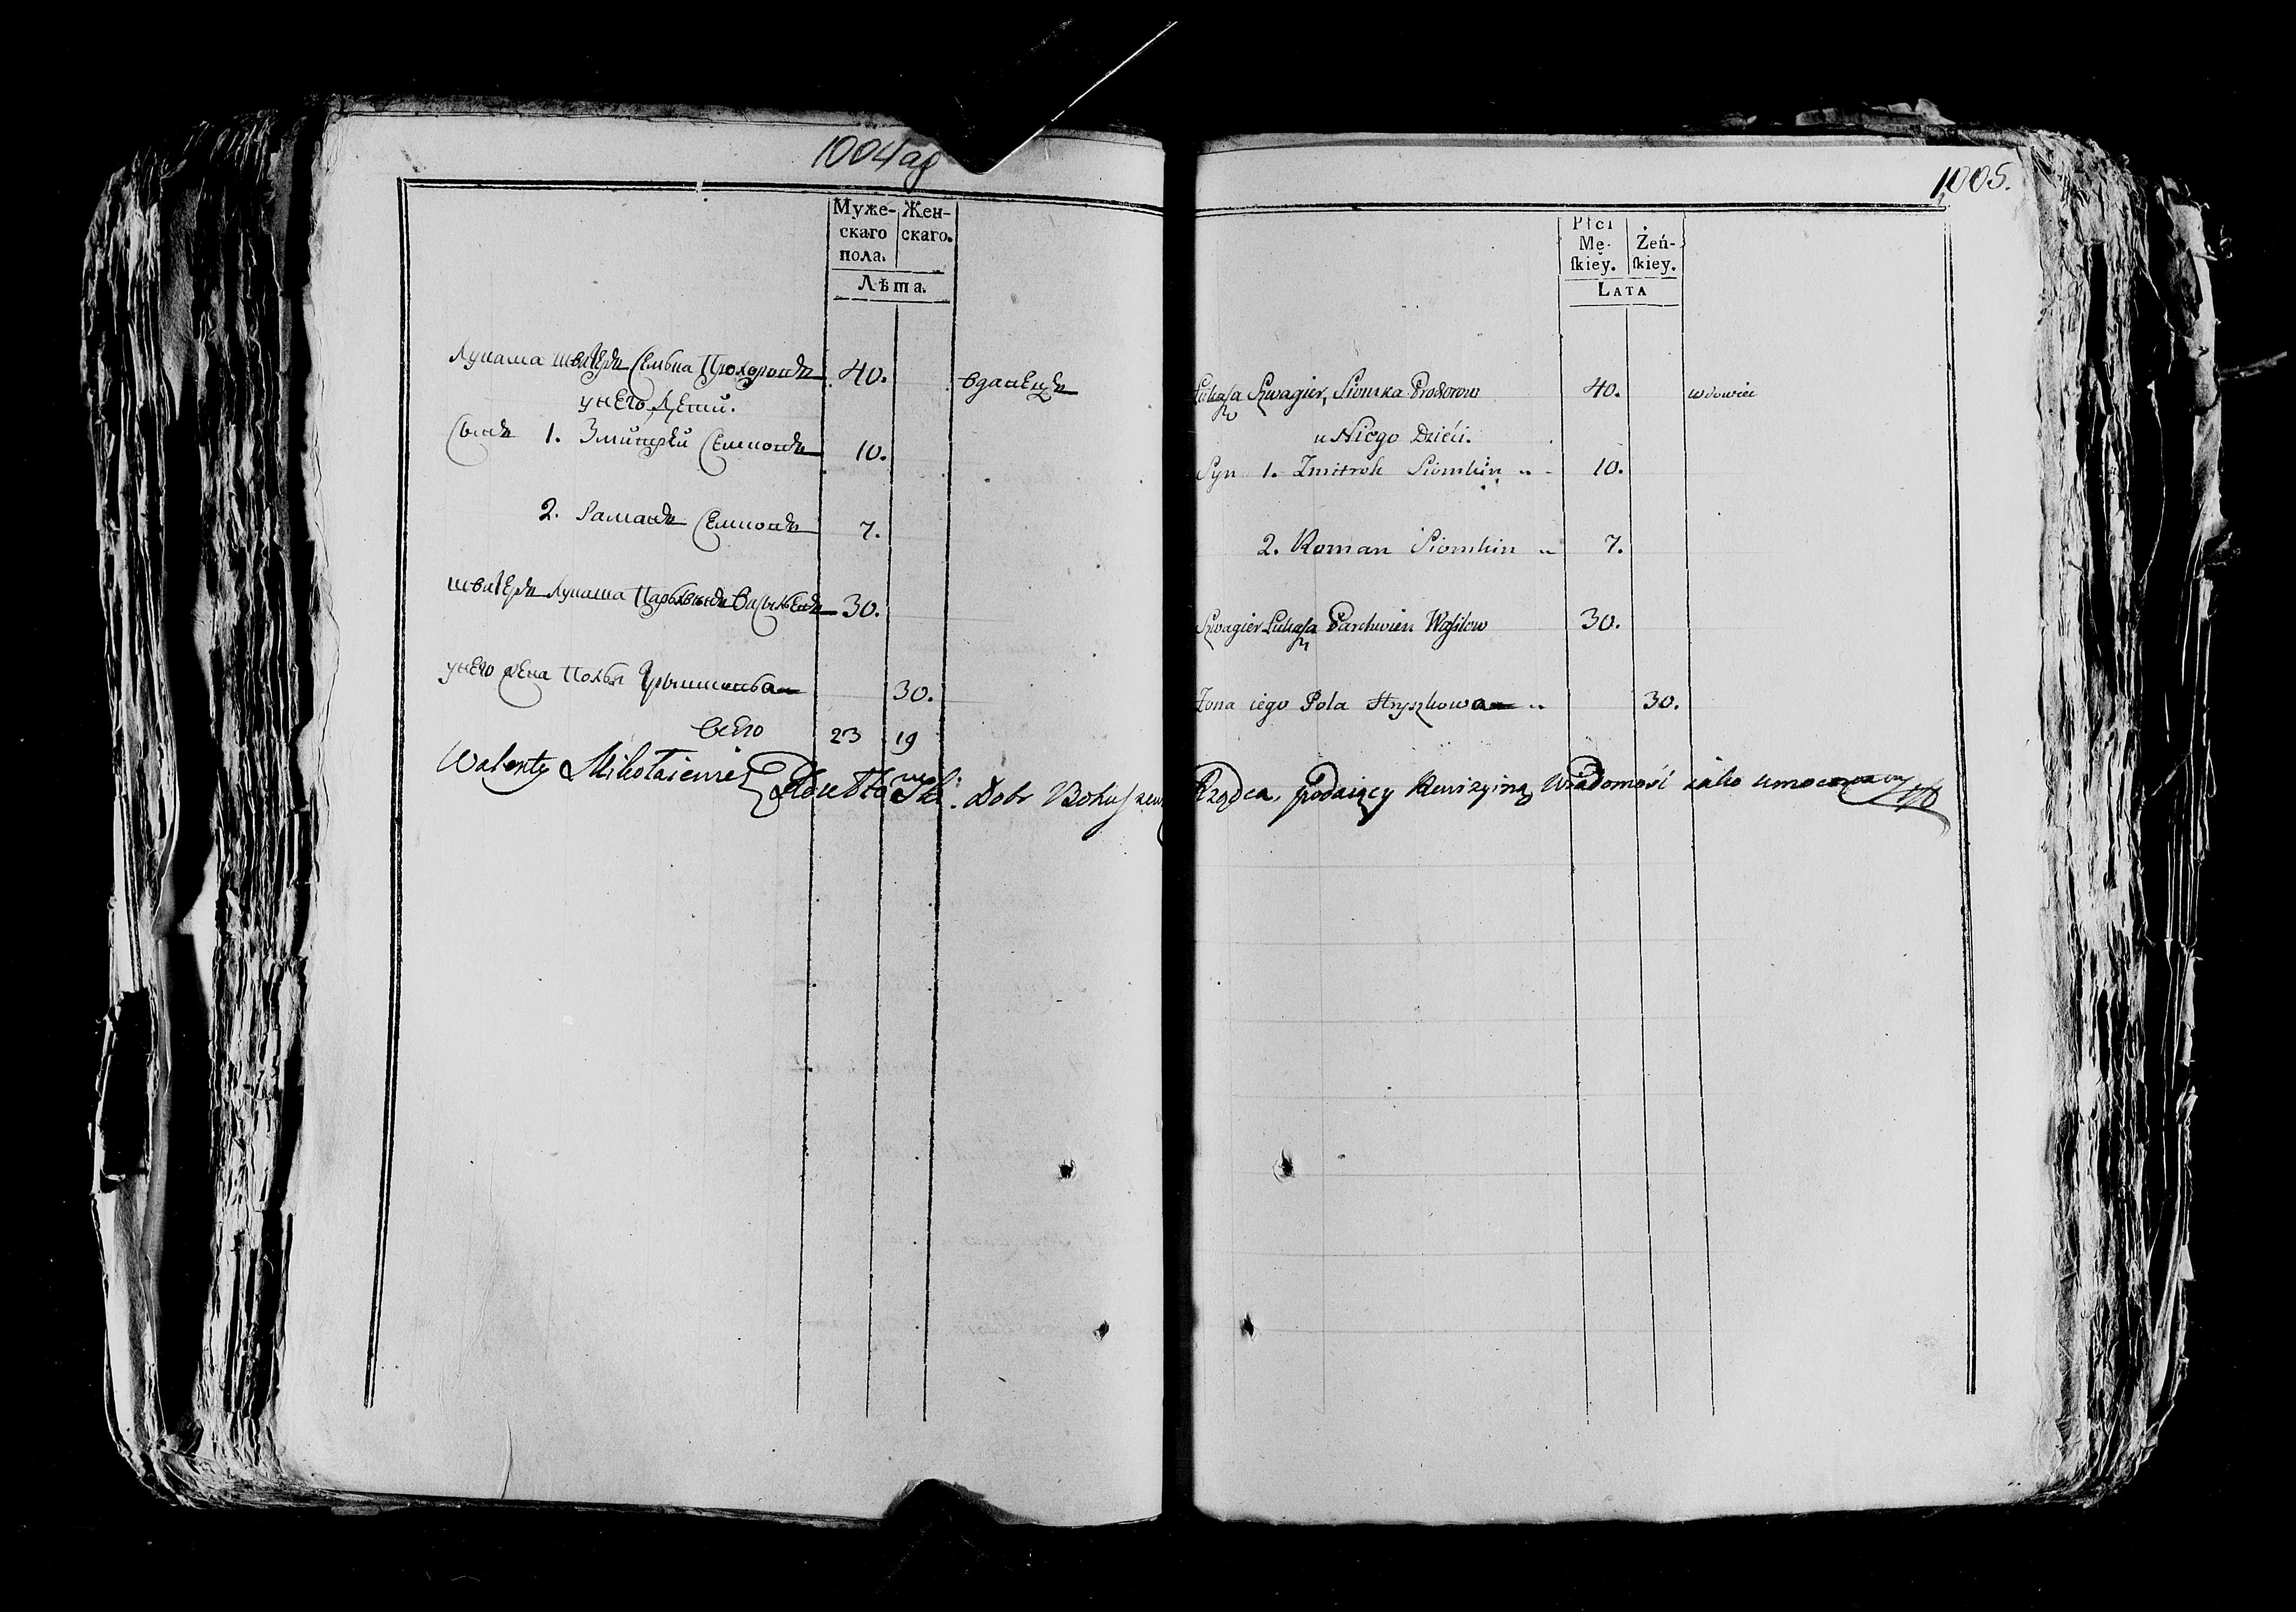 1004 ад
Муже-
скаго
пола.
Жен-
скаго.
Лѣта.
Лукаша швагеръ Семька Прохоровъ 40. вдавецъ
у него дети.
Сынъ 1. Змитрей Семковъ 10.
2. Раманъ Семковъ 7.
швагеръ Лукаша Парьхвенъ Васильевъ 30.
у него жена Полья Грышкова 30.
всего 23 19
1005.
Płci
Mę-
ſkiey.
Żeń-
ſkiey.
LATA
Łukaſza Szwagier, Siomka Prochorow 40. wdowiec
u Niego Dzieci.
Syn 1. Zmitrok Siomkin 10.
2. Roman Siomkin 7.
Szwagier Łukaſza Parchwien Waſilow 30.
Żona iego Pola Hryszkowa 30.
Walenty Mikołaiewicz Dobr Rządca, podaiący Rewizyiną Wiadomość iako umocowany